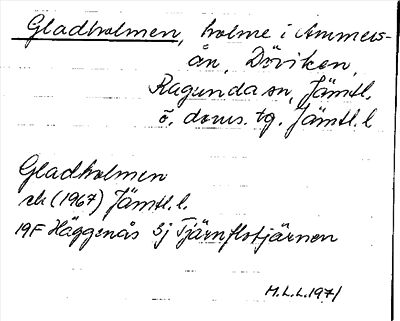 Gladholmen, holme i Ammers-
ån, Döviken,
Ragunda sn, Jämtl.
ö. doms. tg. Jämtl. l
Gladholmen
rk (1967) Jämtl. l.
19F Häggenås 3j Tjärnflotjärnen
M.L.L. 1971